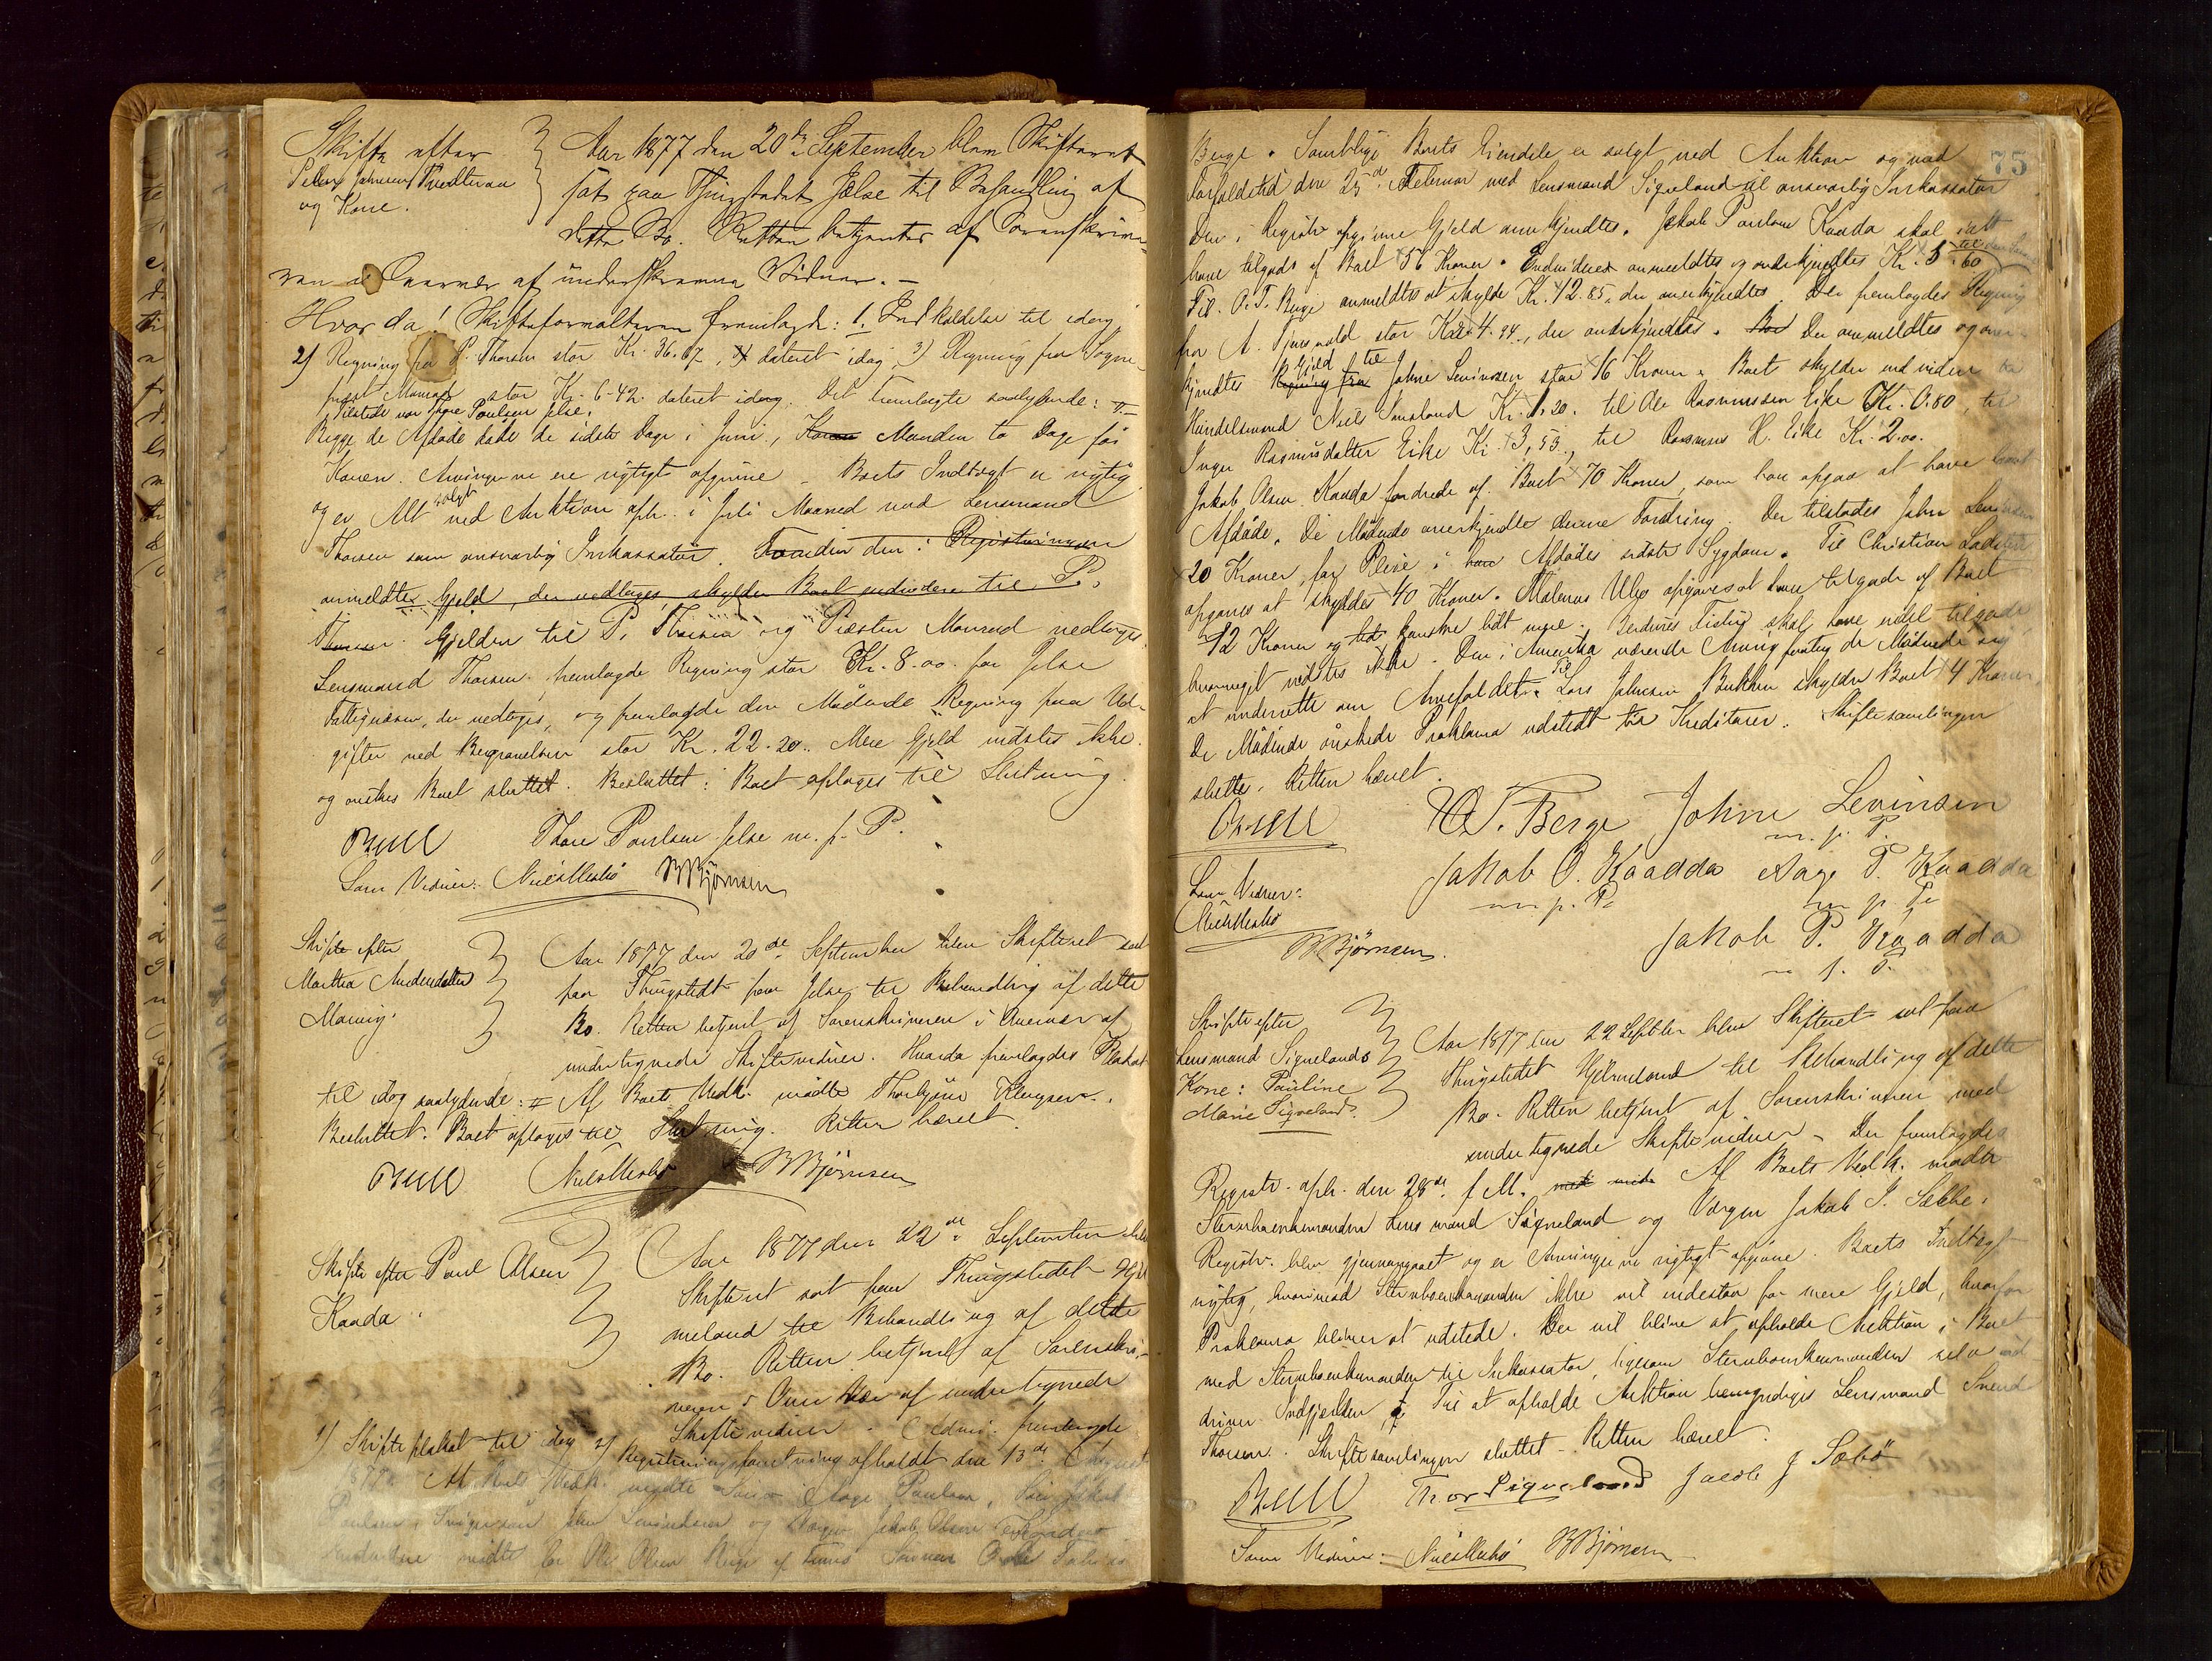 Skifte efter
Peder Johnsen Tvedteraa
og Kone.
Aar 1877 den 20de September blev Skifteret
sat paa Thingstedet Jelse til Behandling af
dette Bo. Retten betjentes af Sorenskrive-
ren i Overvær af underskrevne Vidner. -
Hvorda! Skifteforvalteren fremlagde: 1. Indkaldelse til idag
2) Regning fra P. Thorsen stor Kr. 36.67, dateret idag, 3) Regning fra Sogne-
præst Monrad stor Kr. 6-42 dateret idag. Det Fremlagte saalydende:
Tilstede var Thore Poulsen Jelse.
Begge de Afdøde døde de sidste Dage i Juni, Konen Manden to Dage før
Konen. Arvingerne ere rigtigt opgivne - Boets Indtægt er rigtig
og er Alt solgt ved Auktion afh. i Juli Maaned med Lensmand
Thorsen som ansvarlig Inkassator. Foruden den i Registreringen
anmeldte Gjeld, der vedtages, skylder Boet endvidere til P.
Thorsen. Gjelden til P. Thorsen og Præsten Monrad vedtages.
Lensmand Thorsen fremlagde Regning stor Kr. 8.00 for Jelse
Fattigvæsen, der vedtages, og fremlagde den Mødende Regning paa Ud-
gifter ved Begravelsen stor Kr. 22.20. Mere Gjeld vidstes ikke
og ønskes Boet sluttet. Besluttet: Boet optages til Slutning.
Thore Poulsen Jelse m. p. P.
Som Vidner: BBjørnsen
Skifte efter
Martha Andersdatter
Aar 1877 den 20de September blev Skifteret sat
paa Thingstedt paa Jelse til Behandling af dette
Bo. Retten betjent af Sorenskriveren i Overvær af
undertegnede Skiftevidner. Hvorda fremlagdes Plakat
til idag saalydende: Af Boets Vedk. mødte Thorbjørn
Besluttet. Boet optages til Slutning. Retten hævet.
BBjørnsen
Skifte efter Poul Olsen
Kaada.
Aar 1877 den 22de September blev
Skifteret sat paa Thingstedet Hjel-
meland til Behandling af dette
Bo. Retten betjent af Sorenskri-
veren i Overvær af undertegnede
Skiftevidner. fremlagde
1) Skifteplakat til idag 2) Registreringsforretning afholdt den 13de
1877. Af Boets Vedk. mødte Aage Poulsen, Jakob
Poulsen, Svigersøn John Levinsen og Jakob Olsen
mødte for Ole Olsen
75
Berge. Samtlige Boets Eiendele er solgt ved Auktion og ved
den 25de Februar med Lensmand Signeland til ansvarlig Inkassator
Den i Registr. opgivne Gjeld anerkjendtes. Jakob Poulsen Kaada skal
have tilgode af Boet 56 Kroner. Endvidere anmeldtes og anerkjendtes Kr. 5.60
Til O. T. Berge anmeldtes at skylde Kr. 42.85, der anerkjendtes. Der fremlagdes Regning
fra A. stor Kr. 4.94, der anerkjendtes. Der anmeldtes og aner-
kjendtes Regning fra Gjeld til Johne Levinsen stor 16 Kroner. Boet skylder endvidere til
Handelsmand Niels Kr. 1.20. til Ole Rasmussen Eike Kr. 0.80, til
Inger Rasmusdatter Eike Kr. 3,53, til Rasmus H. Eike Kr. 2.00.
Jakob Olsen Kaada fordrede af Boet 70 Kroner, som han opgav at have laant
Afdøde. De Mødende anerkjendte denne Fordring. Der tilstodes John Levinsen
20 Kroner for Pleie i han Afdødes sidste Sygdom. Til Christian
opgaves at skyldes 40 Kroner. Malenus opgaves at have tilgode af Boet
12 Kroner og kanske lidt mere. skal have vidst tilgode
hvormeget vidstes ikke. Den i Amerika værende Arving paatog de Mødende sig
at underrette om Arvefaldet. Til Lars Johnsen Bakken skylder Boet 4 Kroner.
De Mødende ønskede Proklama udstedt til Kreditorer. Skiftesamlingen
sluttet. Retten hævet.
O.T. Berge Johne Levinsen
m. p. P.
Jakob O. Kaadda Aage P. Kaadda
m. p. P. m. p. P.
Som Vidner:
BBjørnsen.
Jakob P. Kaadda
m. p. P.
Skifte efter
Lensmand Signelands
Kone: Pauline
Marie Signeland.
Aar 1877 den 22 Septbr blev Skifteret sat paa
Thingstedet Hjelmeland til Behandling af dette
Bo. Retten betjent af Sorenskriveren med
undertegnede Skiftevidner. Der fremlagdes
Registr. afh. den 28de f. M. Af Boets Vedk. mødte
Stervboenkemanden Lensmand Signeland og Værgen Jakob J. Sæbbe.
Registr. blev gjennemgaaet og er Arvingerne rigtigt opgivne. Boets Indtægt
rigtig, hvorimod Stervboenkemanden ikke vil indestaa for mere Gjeld, hvorfor
Proklama bliver at udstede. Der vil blive at afholde Auktion i Boet
med Stervboenkemanden til Inkassator, ligesom Stervboenkemanden selv ind
driver Indgjelden. Til at afholde Auktion bemyndiges Lensmand Svend
Thorsen. Skiftesamlingen sluttet. Retten hævet.
Thor Signeland Jacob J Sæbø
Som Vidner: BBjørnsen